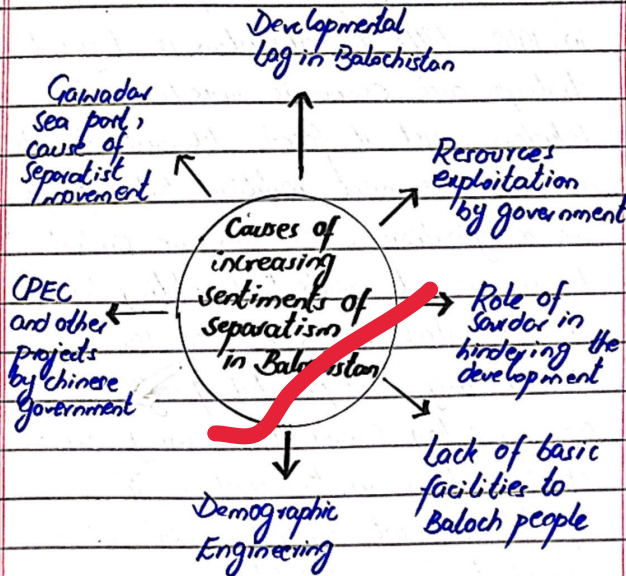 Developmental
Lag in Balochistan
Gawadar
sea port,
cause of
Separatist
movement
Resources
exploitation
by government
Causes of
increasing
sentiments of
separatism
in Balochistan
CPEC
and other
projects
by chinese
government
Role of
Sardar in
hindering the
development
Lack of basic
facilities to
Baloch people
Demographic
Engineering